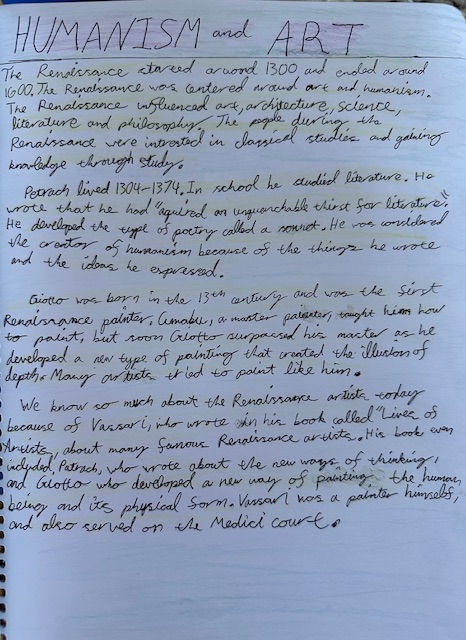 HUMANISM and ART
The Renaissance started around 1300 and ended around
1600. The Renaissance was centered around art and humanism.
The Renaissance influenced art, architecture, science,
literature and philosophy. The people durring the
Renaissance were intrested in classical studies and gaining
knowledge through study.
Petrach lived 1304-1374. In school he studied literature. He
wrote that he had "aquired an unquenchable thirst for literature."
He developed the type of poetry called a sonnet. He was considered
the creator of humanism because of the things he wrote
and the ideas he expressed.
Giotto was born in the 13th century and was the first
Renaissance painter. Cimabu, a master painter, taught him how
to paint, but soon Giotto surpassed his master as he
developed a new type of painting that created the illusion of
depth. Many artists tried to paint like him.
We know so much about the Renaissance artists today
because of Vassari, who wrote in his book called "Lives of
Artists", about many famous Renaissance artists. His book even
included, Patrach, who wrote about the new ways of thinking,
and Giotto who developed a new way of painting the human
being and its physical form. Vassari was a painter himself,
and also served on the Medici court.